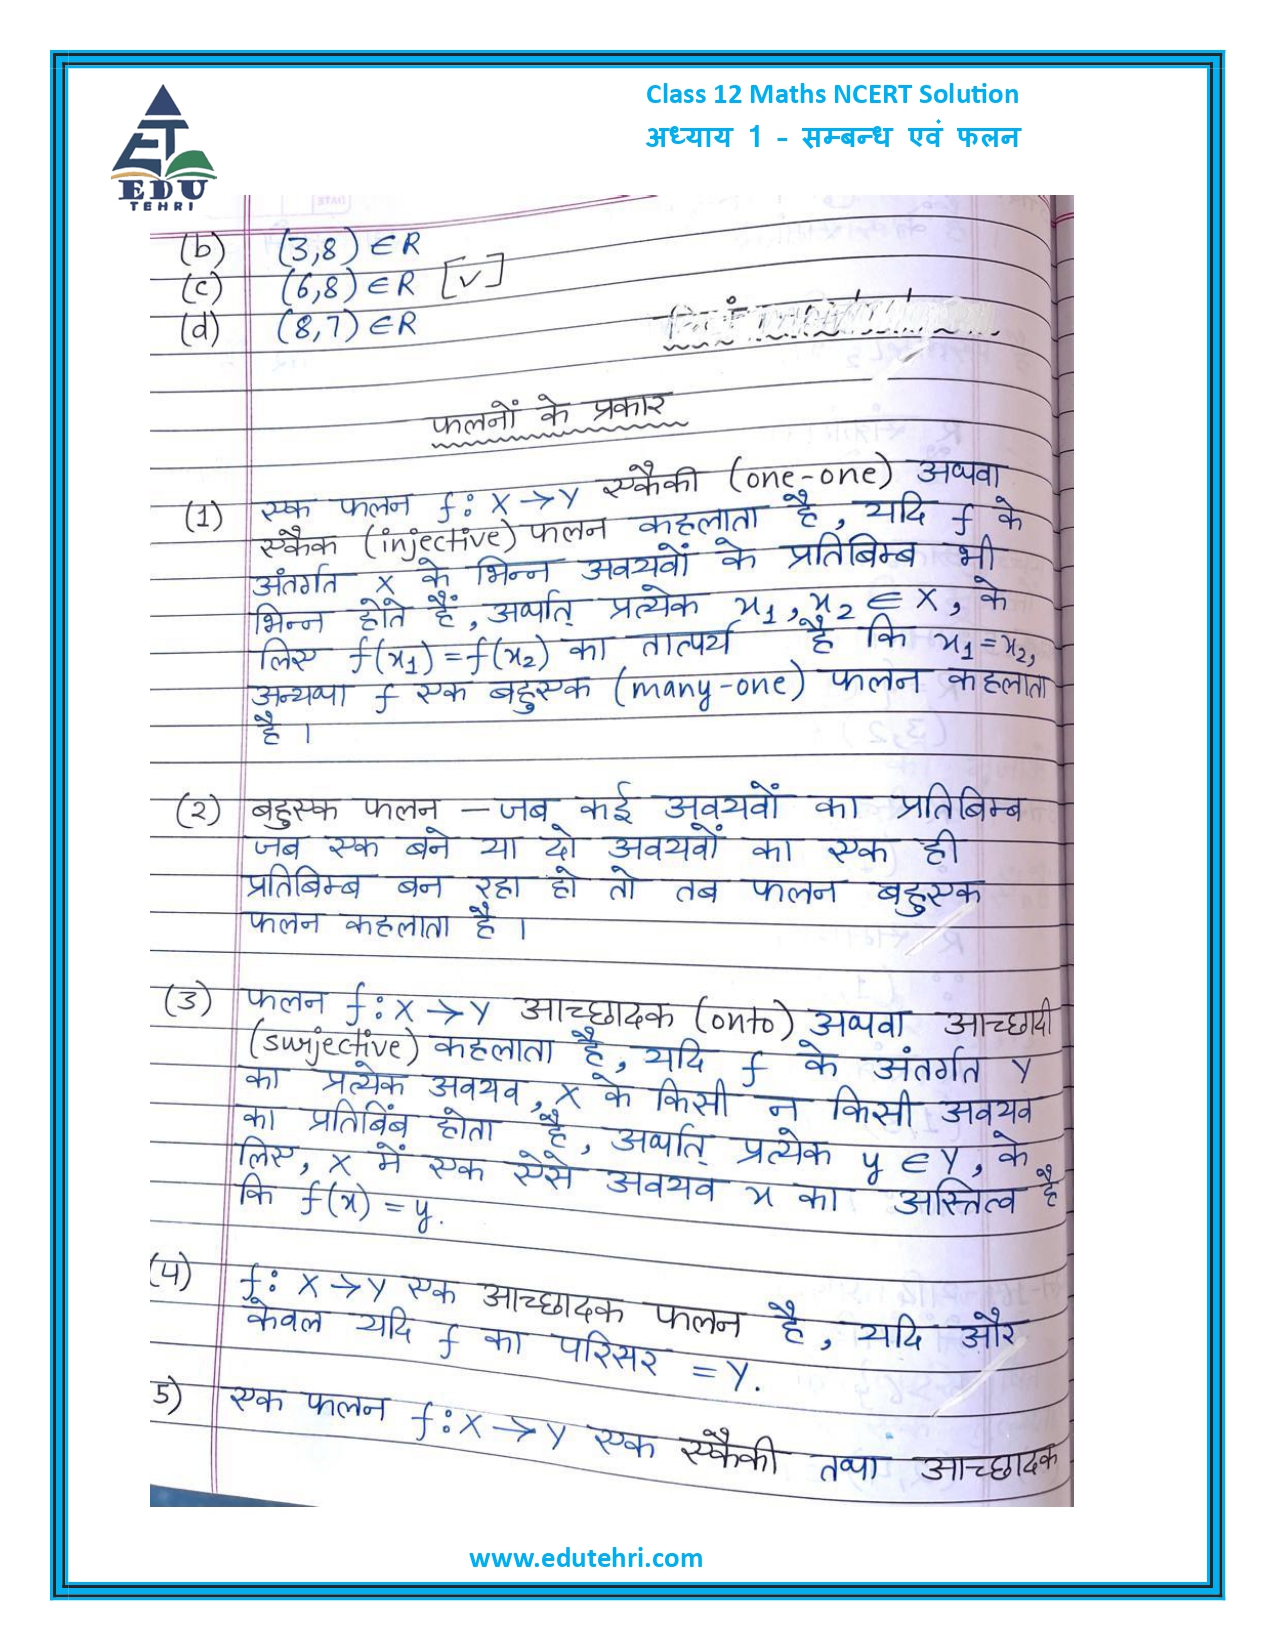 Class 12 Maths NCERT Solution
अध्याय 1 - सम्बन्ध एवं फलन
EDU
TEHRI
(b) (3,8) ∈ R
(c) (6,8) ∈ R [✓]
(d) (8,7) ∈ R
फलनों के प्रकार
(1) एक फलन f : X → Y एकैकी (one-one) अथवा
एकैक (injective) फलन कहलाता है, यदि f के
अंतर्गत X के भिन्न अवयवों के प्रतिबिम्ब भी
भिन्न होते हैं, अर्थात् प्रत्येक x₁, x₂ ∈ X, के
लिए f(x₁) = f(x₂) का तात्पर्य है कि x₁ = x₂,
अन्यथा f एक बहुएक (many-one) फलन कहलाता
है ।
(2) बहुएक फलन — जब कई अवयवों का प्रतिबिम्ब
जब एक बने या दो अवयवों का एक ही
प्रतिबिम्ब बन रहा हो तो तब फलन बहुएक
फलन कहलाता है ।
(3) फलन f : X → Y आच्छादक (onto) अथवा आच्छादी
(surjective) कहलाता है, यदि f के अंतर्गत Y
का प्रत्येक अवयव, X के किसी न किसी अवयव
का प्रतिबिंब होता है, अर्थात् प्रत्येक y ∈ Y, के
लिए, X में एक ऐसे अवयव x का अस्तित्व है
कि f(x) = y.
(4) f : X → Y एक आच्छादक फलन है, यदि और
केवल यदि f का परिसर = Y.
5) एक फलन f : X → Y एक एकैकी तथा आच्छादक
www.edutehri.com